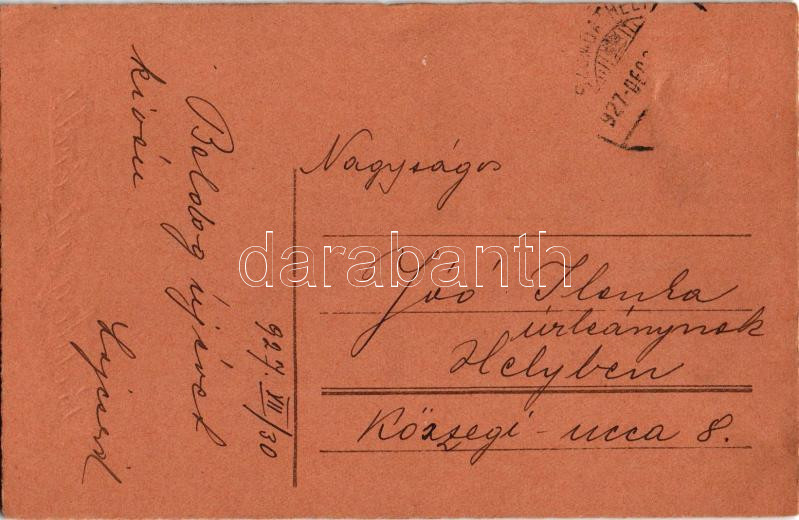 Boldog újévet
kíván
927 XII/30
Nagyságos
Joó Ilonka
úrleánynak
Helyben
Kőszegi-ucca 8.
SZOMBATHELY
927 DEC
darabanth